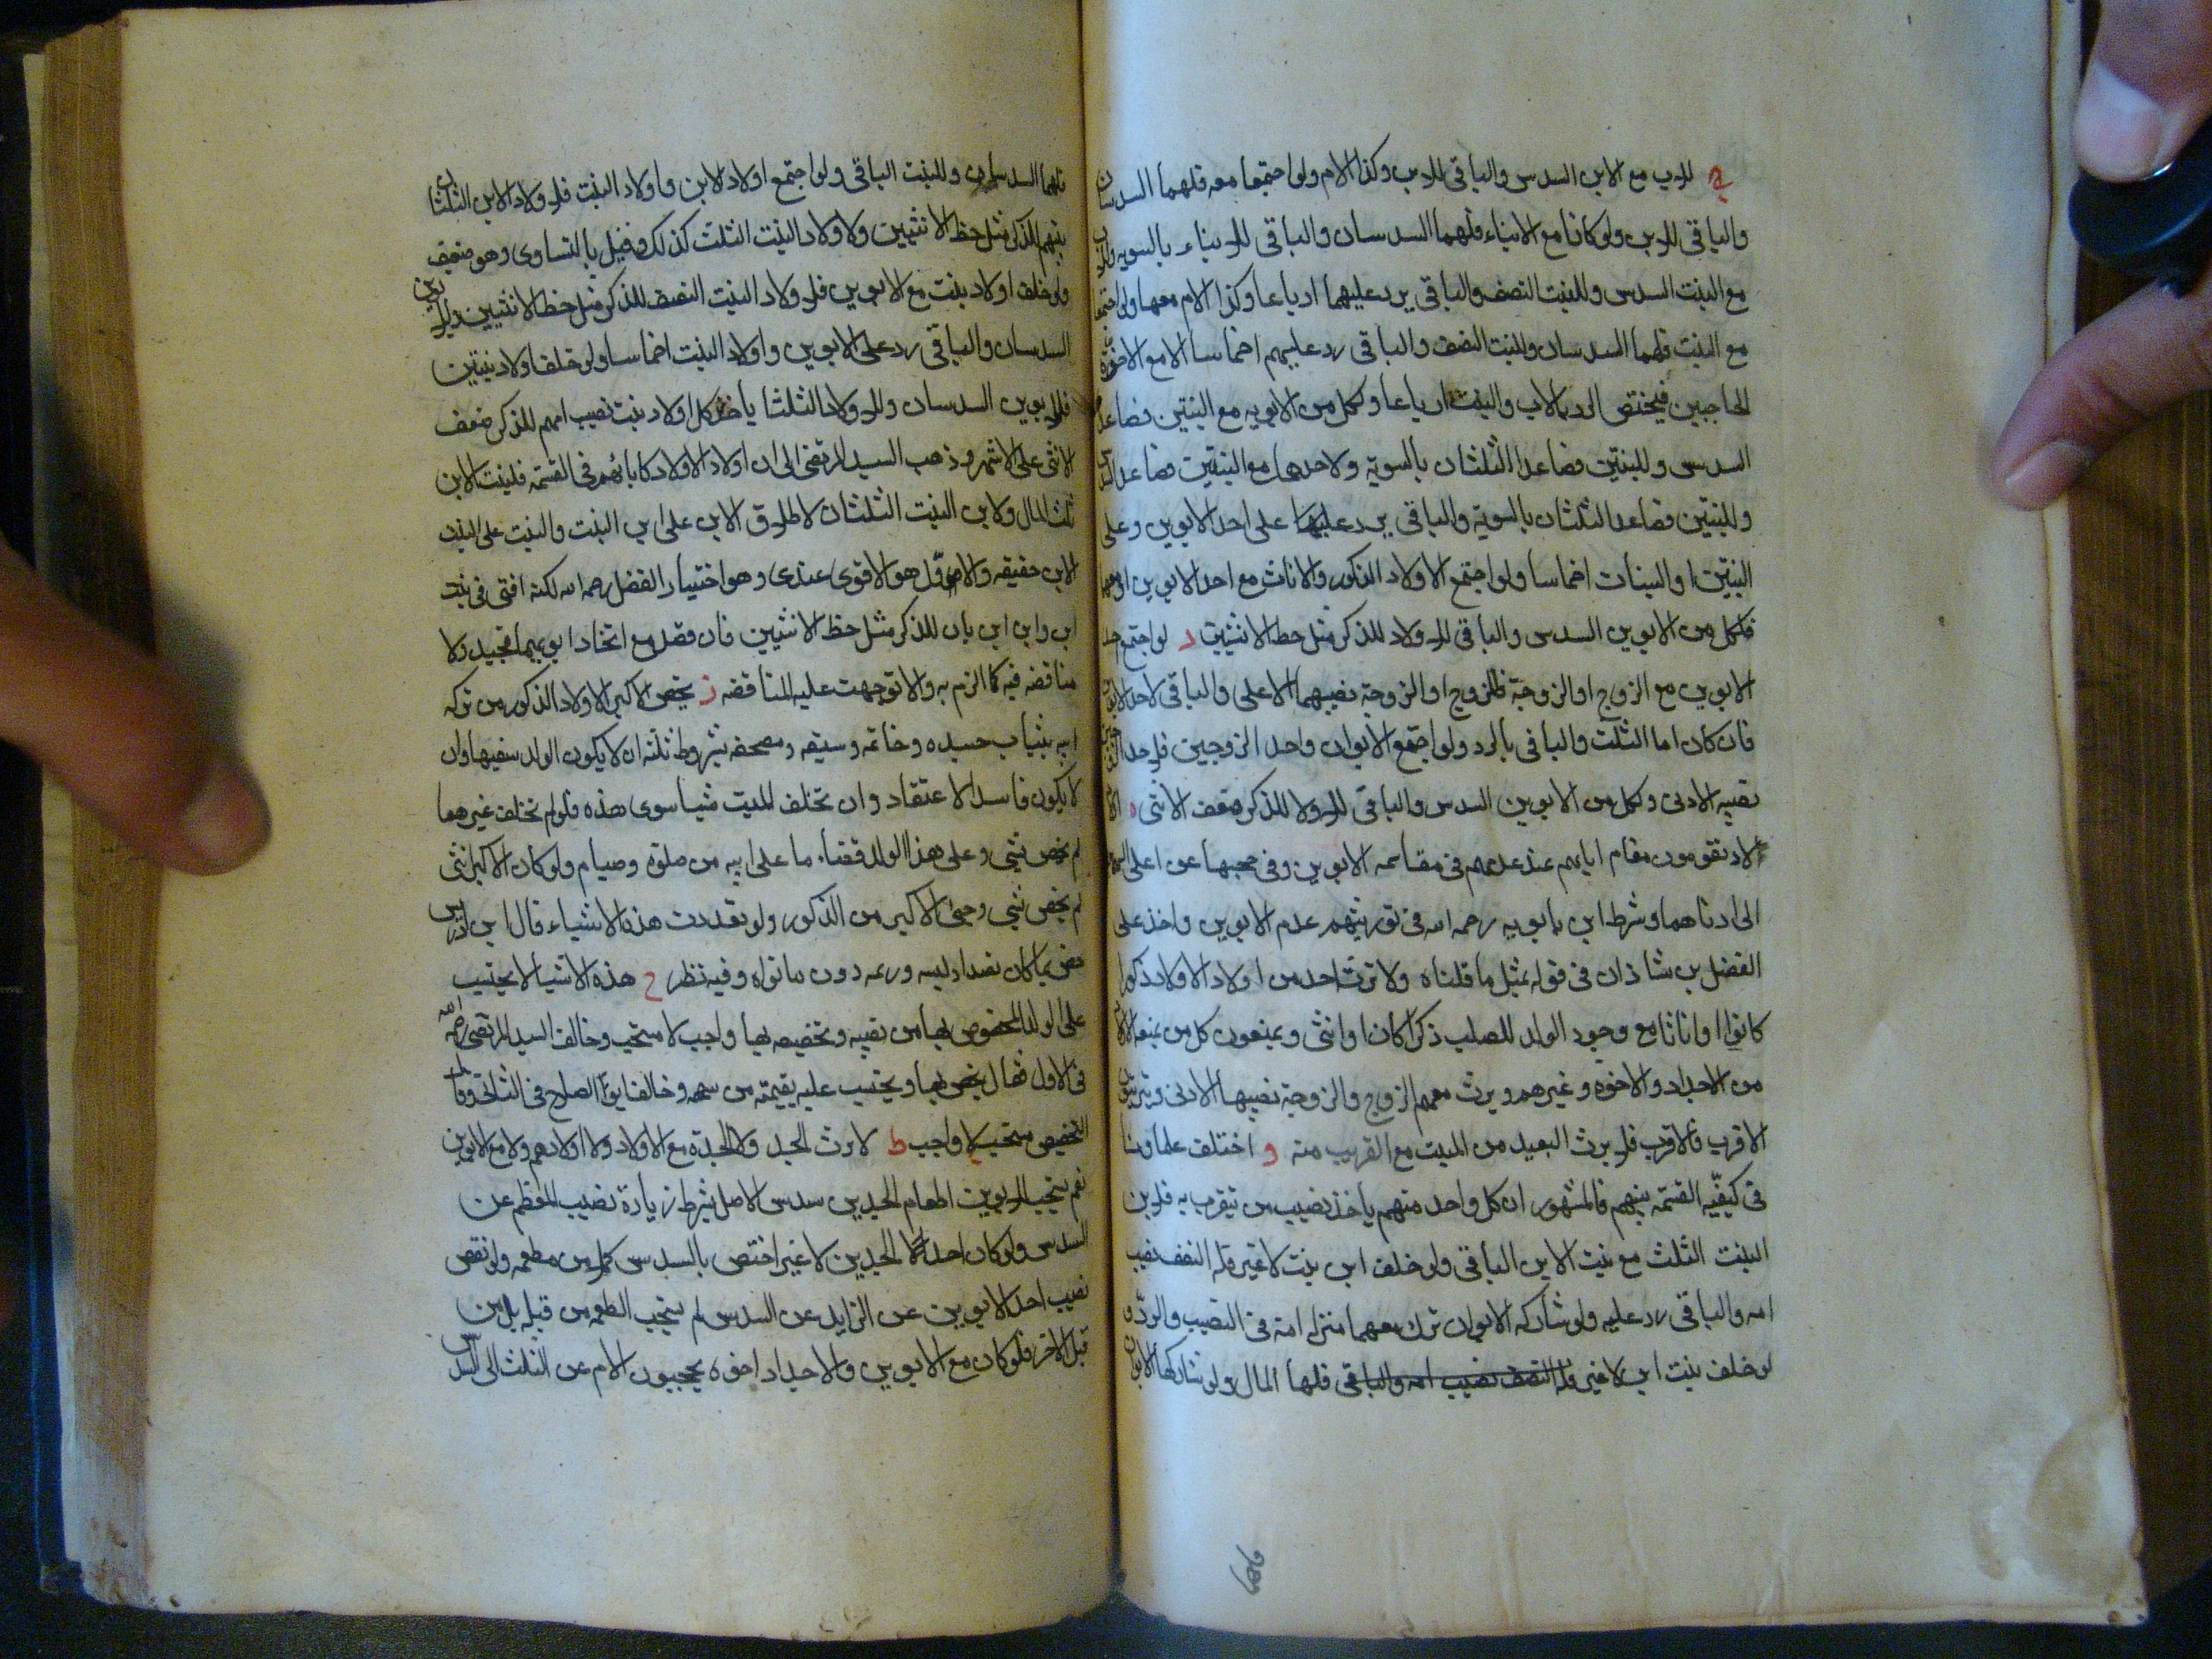 ج للاب مع الابن السدس والباقي للابن وكذا الام ولو اجتمعا معه فلهما السدسان
والباقي للابن ولو كانا مع الابناء فلهما السدسان والباقي للابناء بالسويه وللاب
مع البنت السدس وللبنت النصف والباقي يرد عليهما ارباعا وكذا الام معها ولو اجتمعا
مع البنت فلهما السدسان وللبنت النصف والباقي رد عليهم اخماسا الا مع الاخوة
الحاجبين فيختص الرد بالاب والبنت ارباعا ولكل من الابويه مع البنتين فصاعدا
السدس وللبنتين فصاعدا الثلثان بالسوية ولاحدهما مع البنتين فصاعدا السدس
وللبنتين فصاعدا الثلثان بالسوية والباقي يرد عليها على احد الابوين وعلى
البنتين او البنات اخماسا ولو اجتمع الاولاد الذكور والاناث مع احد الابوين او معهما
فلكل من الابوين السدس والباقي للاولاد للذكر مثل حظ الانثيين د لو اجتمع احد
الابوين مع الزوج او الزوجة فللزوج او الزوجة نصيبهما الاعلى والباقي لاحد الابوين
فان كان اما الثلث والباقي بالرد ولو اجتمع الابوان واحد الزوجين فلاحد الزوجين
نصيبه الادنى ولكل من الابوين السدس والباقي للاولاد للذكر ضعف الانثى ه اولاد
الاولاد يقومون مقام ابايهم عند عدمهم في مقاسمه الابوين وفي حجبها عن اعلى السهمين
الى ادناهما وشرط ابن بابويه رحمه الله في توريثهم عدم الابوين واخذ على
الفضل بن شاذان في قوله بمثل ما قلناه ولا ترث احد من اولاد الاولاد ذكورا
كانوا او اناثا مع وجود الولد للصلب ذكرا كان او انثى ويمنعون كل من يمنعه الاولاد
من الاجداد والاخوه وغيرهم ويرث معهم الزوج والزوجة نصيبها الادنى ويترتبون
الاقرب فالاقرب فلا يرث البعيد من الميت مع القريب منه و اختلف علماؤنا
في كيفيه القسمة بينهم فالمشهور ان كل واحد منهم ياخذ نصيب من يتقرب به فلابن
البنت الثلث مع بنت الابن الباقي ولو خلف ابن بنت لا غير فله النصف نصيب
امه والباقي رد عليه ولو شاركه الابوان ترك معهما منزله امه في النصيب والرد و
لو خلف بنت ابن لا غير فله النصف نصيب امه والباقي فلها المال ولو شاركها الابوان
فلهما السدسان وللبنت الباقي ولو اجتمع اولاد الابن واولاد البنت فلاولاد الابن الثلثان
بينهم للذكر مثل حظ الانثيين ولاولاد البنت الثلث كذلك وقيل بالتساوي وهو ضعيف
ولو خلف اولاد بنت مع الابوين فلاولاد البنت النصف للذكر مثل حظ الانثيين وللابوين
السدسان والباقي رد على الابوين واولاد البنت اخماسا ولو خلف اولاد بنتين
فللابوين السدسان وللاولاد الثلثا ياخذ كل اولاد بنت نصيب امهم للذكر ضعف
الانثى على الاشهر وذهب السيد المرتضى الى ان اولاد الاولاد كابائهم في القسمة فلبنت الابن
ثلث المال ولابن البنت الثلثان لاطلاق الابن على ابن البنت والبنت على بنت
الابن حقيقه والاول هو الاقوى عندي وهو اختيار الفضل رحمه الله لكنه افتى في بنت
ابن وابن ابن بان للذكر مثل حظ الانثيين فان فضل مع اتحاد ابويهما فجيد ولا
مناقضه فيه كما الزم به والا توجهت عليه المناقضه ز يخص الاكبر الاولاد الذكور من تركه
ابيه بثياب جسده وخاتمه وسيفه ومصحفه بشروط ثلثه ان لا يكون الولد سفيها وان
لا يكون فاسد الاعتقاد وان تخلف الميت شيا سوى هذه فلو لم تخلف غيرهما
لم يخص بشي وعلى هذا الولد قضاء ما على ابيه من صلوة وصيام ولو كان الاكبر انثى
لم يخص بشي وحبى الاكبر من الذكور ولو تعددت هذه الاشياء قال ابن ادريس
خص بما كان يعتاد لبسه ودون ما سواه وفيه نظر ح هذه الاشيا لا يحتسب
على الولد المخصوص بها من نصيبه وتخصيصه بها واجب لا مستحب وخالف السيد المرتضى رحمه الله
في الاول فقال يخص بها ويحتسب عليه بقيمته من سهمه وخالف ابو الصلاح في الثاني وقال
التخصيص مستحب لا واجب ط لا يرث الجد ولا الجدة مع الاولاد ولا اولادهم ولا مع الابوين
نعم يستحب للابوين اطعام الجدين سدس الاصل بشرط زيادة نصيب المطعم عن
السدس ولو كان احد الجدين لا غير اختص بالسدس كملا من مطعمه ولو نقص
نصيب احد الابوين عن الزايد عن السدس لم يستحب الطعمه من قبله بل من
قبل الاخر فلو كان مع الابوين والاجداد اخوه يحجبون الام عن الثلث الى السدس